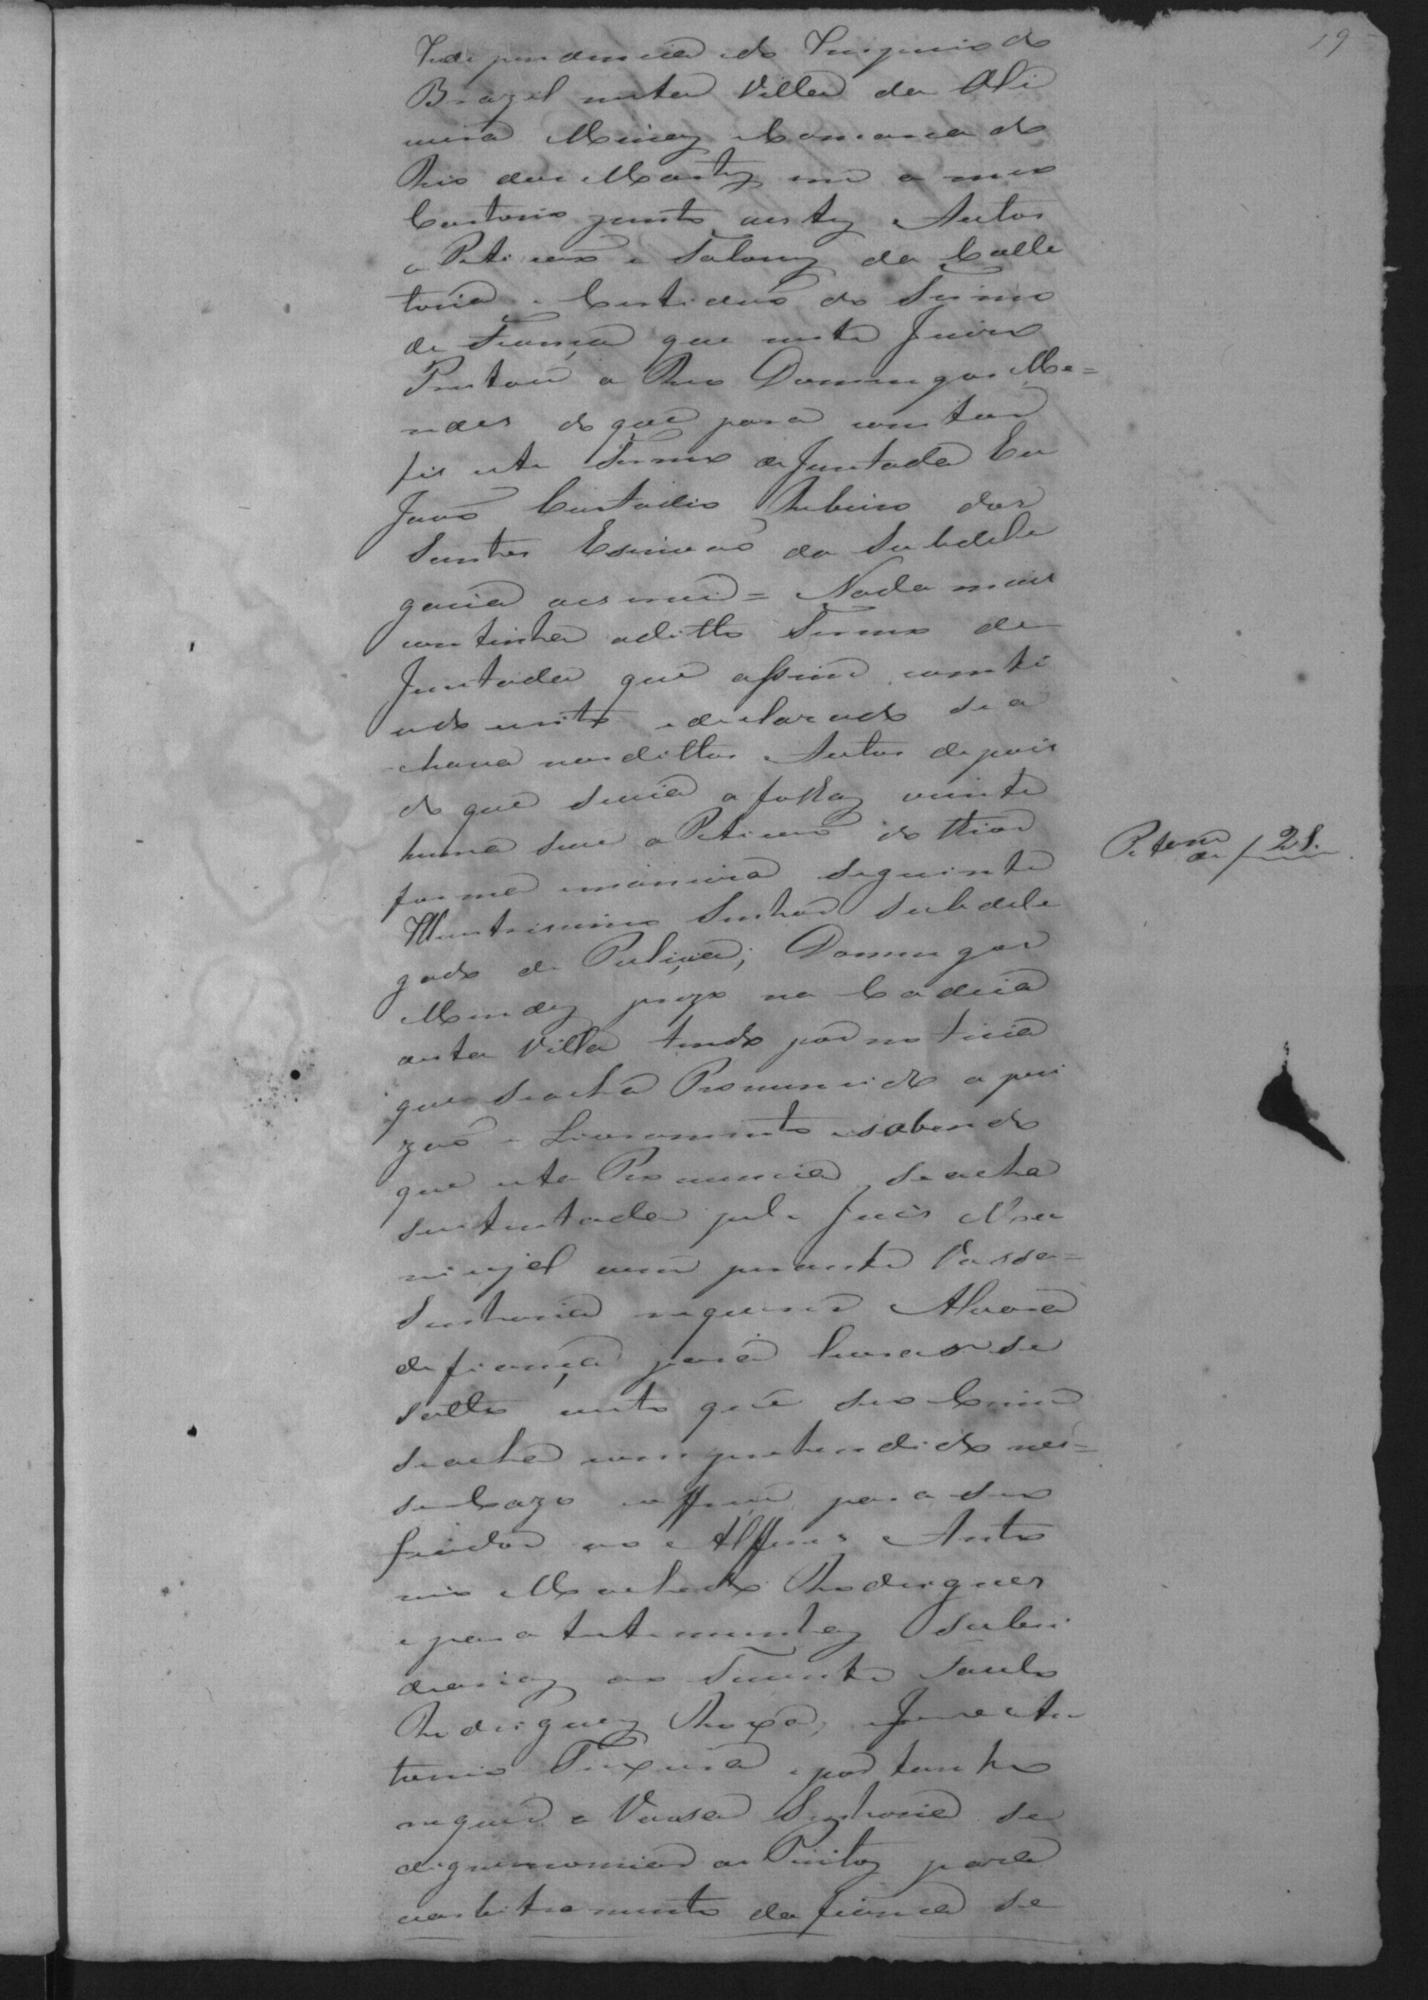 19
Independencia e do Imperio do
Brazil nesta Villa da Oli
veira Minas Comarca do
Rio das Mortes em o meu
Cartorio junto aestes Autos
a Peticaõ e Taloens da Colle
toria e Certidaõ do Termo
de Fiança que neste Juizo
Prestou o Reo Domingos Me=
ndes do que para constar
fis este Termo de Juntada Eu
Joaõ Custodio Ribeiro dos
Santos Escrivaõ da Subdele
gacia escrevi = Nada mais
continha o ditto Termo de
Juntada que assim conthi
udo escrito e declarado se a
chava nos dittos Autos depois
do que se via a folhas vinte
huma ser a Peticaõ do thior
forma e maneira seguinte
Illustrissimo Senhor Subdele
gado de Policia; Domingos
Mendes prezo na Cadeia
desta Villa tendo por noticia
que se acha Pronunciado a pri
zaõ e Livramento e sabendo
que esta Pronuncia se acha
sustentada pelo Juis Mu
nicipal vem perante Vossa=
Senhoria requerer Alvará
de fiança para livrar-se
solto visto que o seo Crime
se acha comprehendido nes=
se Cazo e offerece para seu
fiador ao Alferes Anto
nio Machado Rodrigues
e para testemunhas Subsi
diarias ao Tenente Paulo
Rodrigues Roxa, e Jose An
tonio Teixeira e por tanto
requer a Vossa Senhoria se
digne nomiar os Peritos para
o arbitramento da fiança se
Petiçaõ
de f 21.